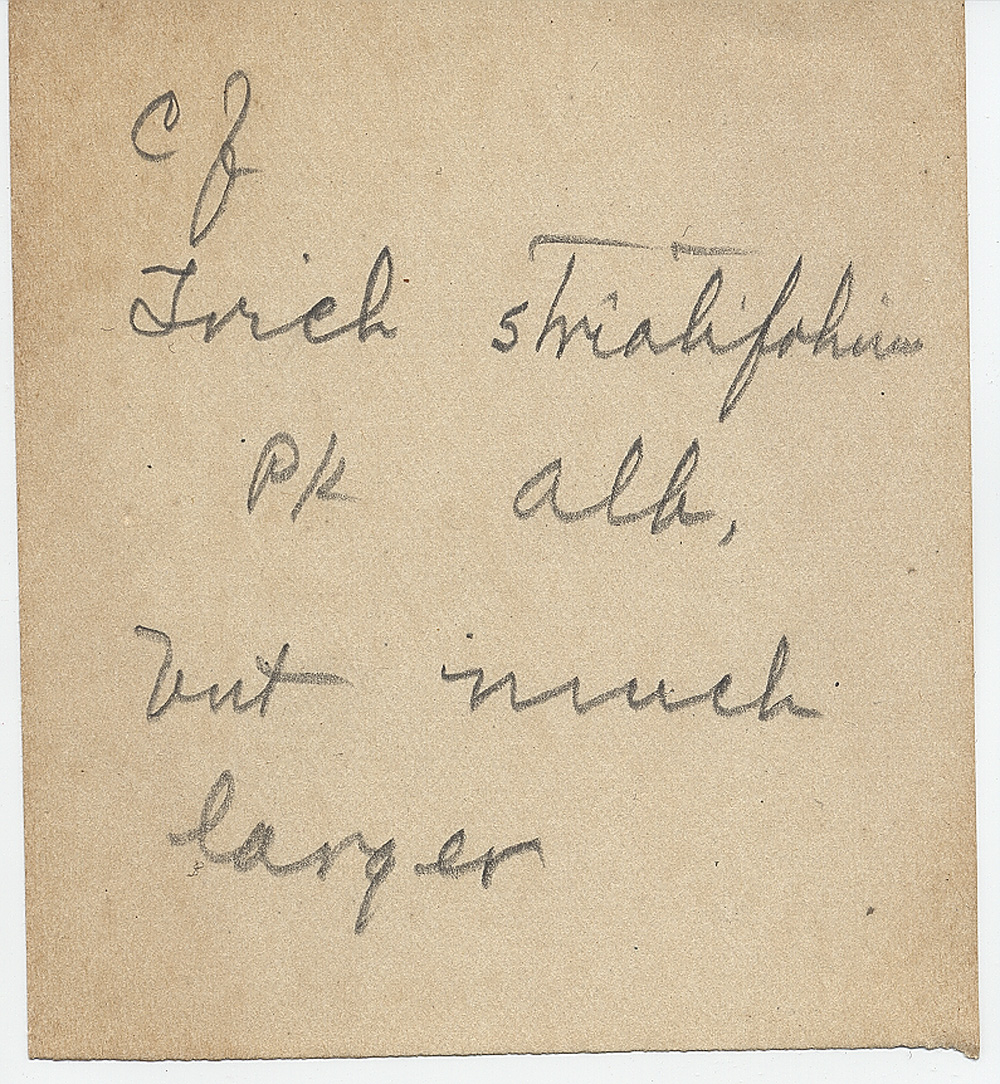 cf
Trich striatifolium
Pk alb,
but much
larger